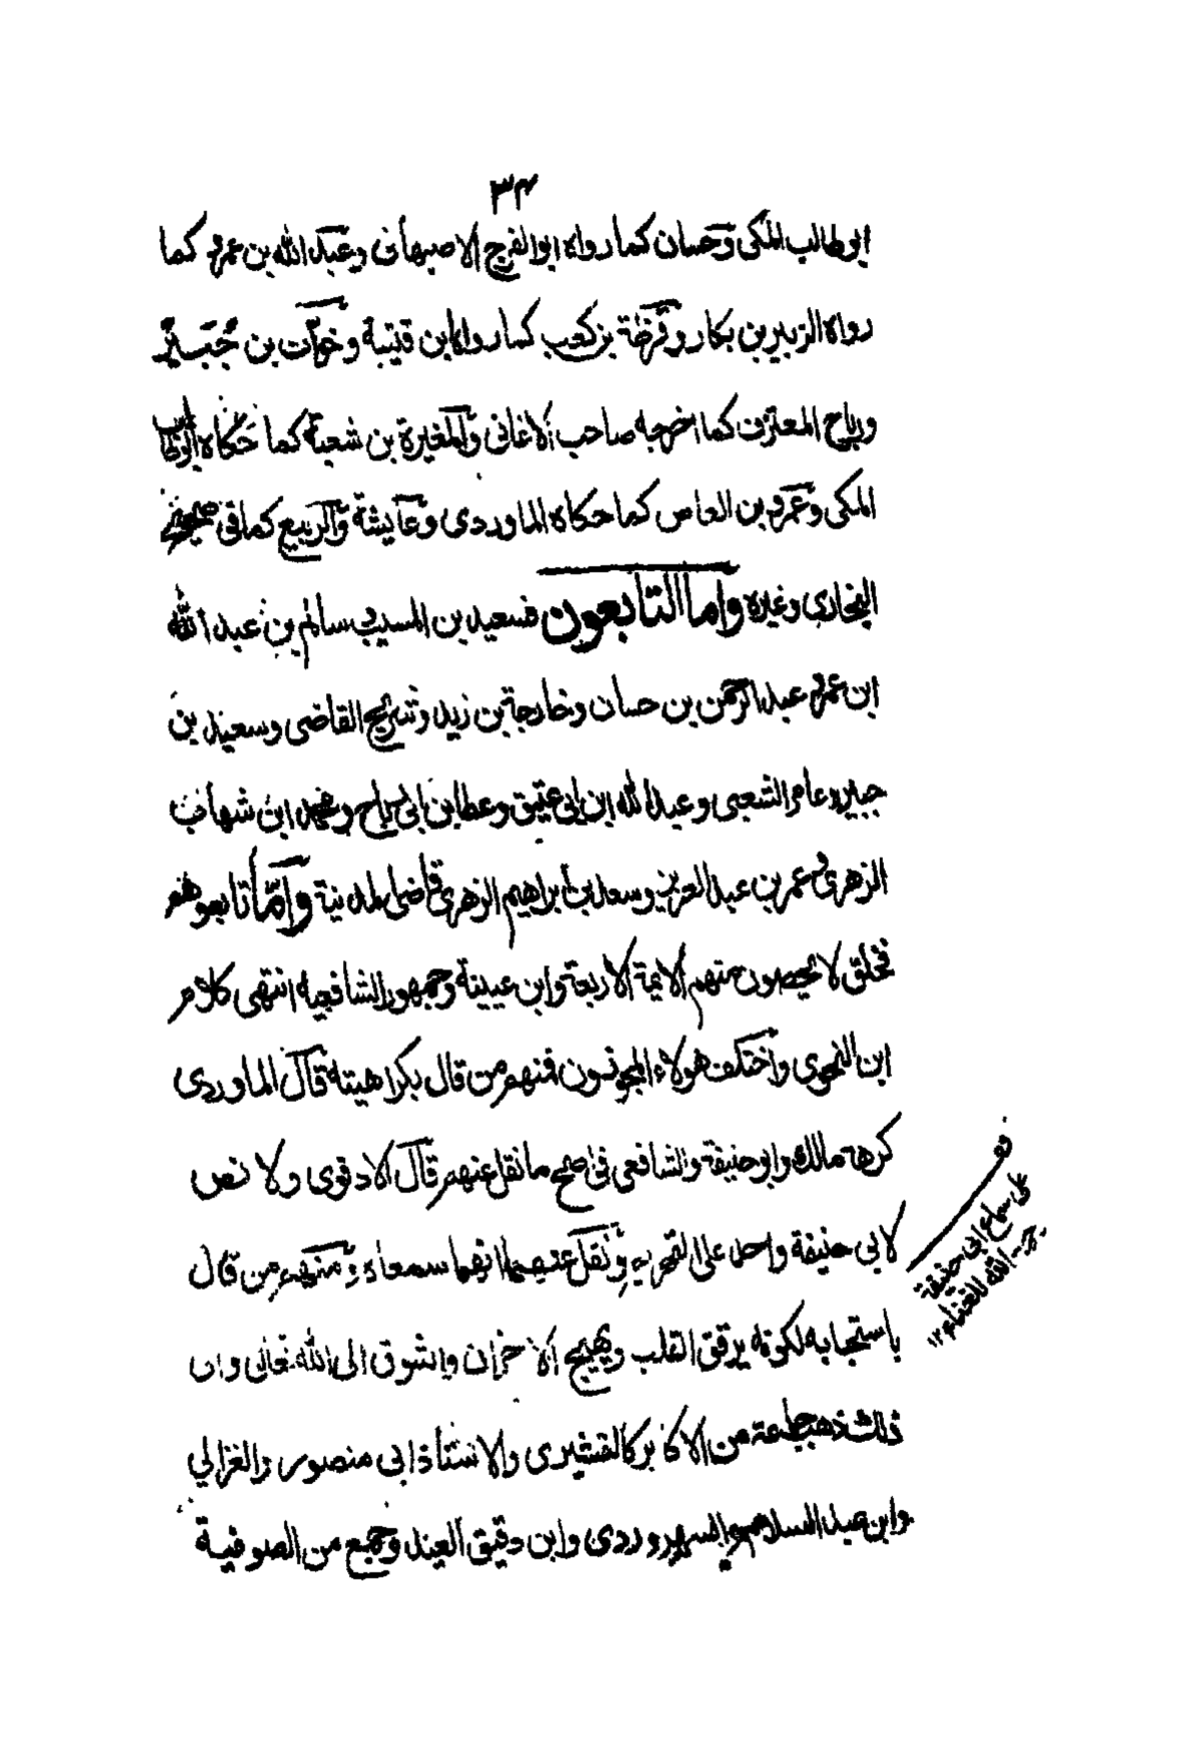 ٣٤
ابوطالب المكى وحسان كما رواه ابوالفرج الاصبهانى وعبد الله بن عمرو كما
رواه الزبير بن بكار وقرظة بن كعب كما رواه ابن قتيبة وخوات بن جبير
ورباح المعترف كما اخرجه صاحب الاغانى والمغيرة بن شعبة كما حكاه ابوطالب
المكى وعمرو بن العاص كما حكاه الماوردى وعايشة والربيع كما فى صحيح
البخارى وغيره واما التابعون فسعيد بن المسيب وسالم بن عبد الله
ابن عمرو عبد الرحمن بن حسان وخارجة بن زيد وشريح القاضى وسعيد بن
جبير وعامر الشعبى وعبد الله ابن ابى عتيق وعطا بن ابى رباح ومحمد ابن شهاب
الزهرى وعمر بن عبد العزيز وسعد بن ابراهيم الزهرى قاضى المدينة واما تابعوهم
فخلق لا يحصون منهم الايمة الاربعة وابن عيينة وجمهور الشافعية انتهى كلام
ابن النحوى واختلف هولاء المجوزون فمنهم من قال بكراهيته قال الماوردى
كرهه مالك وابو حنيفة والشافعى فى اصح ما نقل عنهم قال الادفوى ولا نص
لابى حنيفة واحمد على التحريم ونقل عنهما انهما سمعاه ومنهم من قال
باستحبابه لكونه يرقق القلب ويهيج الاحزان والشوق الى الله تعالى وان
ذلك ذهب جماعة من الاكابر كالقشيرى والاستاذ ابى منصور والغزالي
وابن عبد السلام والسهروردى وابن دقيق العيد وجمع من الصوفية
قف
على سماع ابى حنيفة
رحمة الله للغناء ١٢